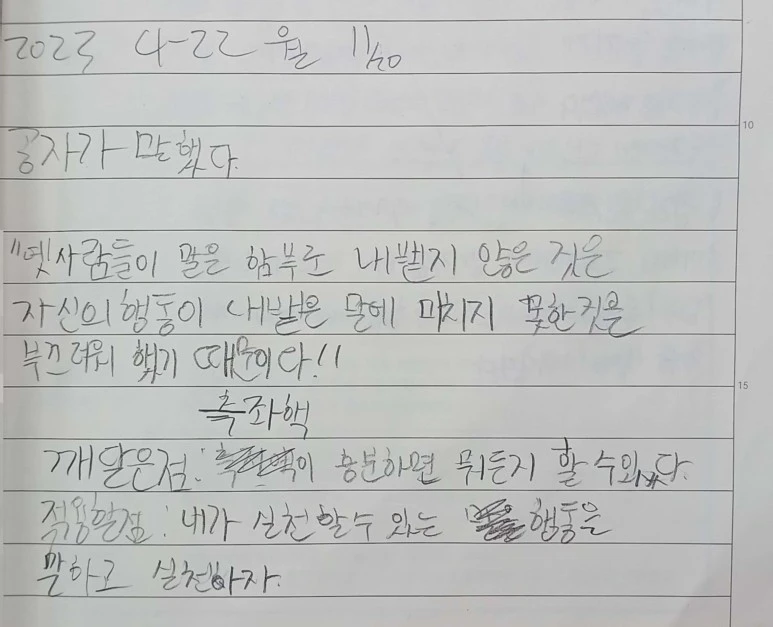 2023 4-22 월 11/20
10
공자가 말했다.
"옛사람들이 말을 함부로 내뱉지 않은 것은
자신의 행동이 내뱉은 말에 미치지 못한것을
부끄러워 했기 때문이다!!
15
측좌핵
깨달은점: 이 흥분하면 뭐든지 할 수 있다.
적용할점: 내가 실천할수 있는 행동을
말하고 실천하자.